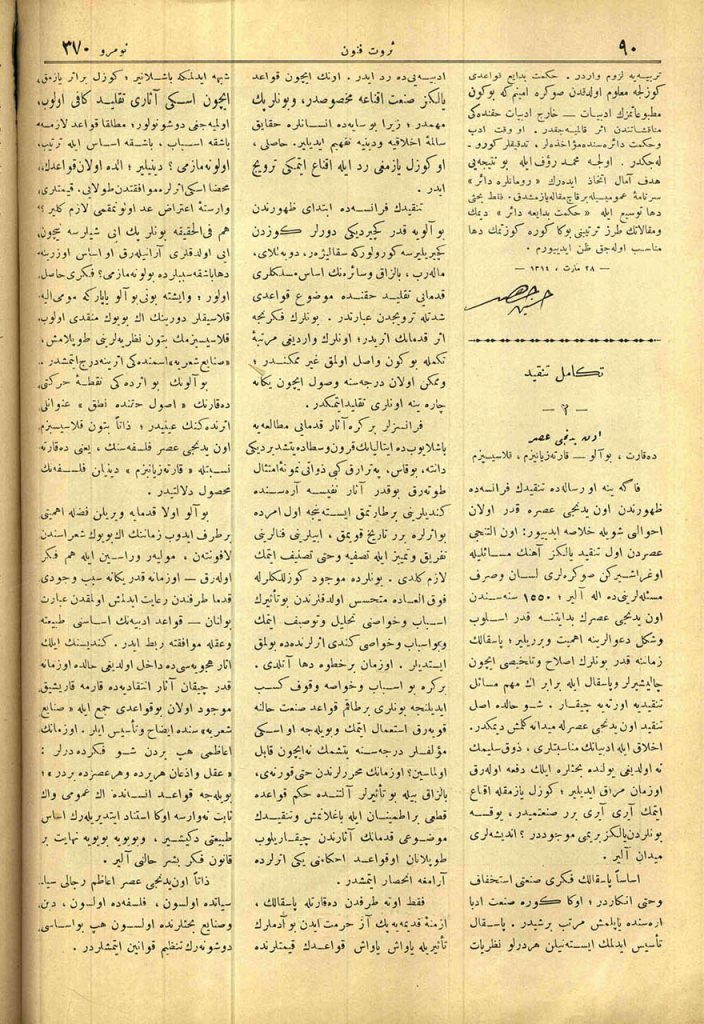 ٩٠
ثروت فنون
نومرو ٣٧٠
تربیه‌یه لزوم واردر . حکمت بدایع قواعدی
کوزلجه معلوم اولدقدن صوکره امینم که بوکون
مطبوعاتمزك ادبیات — خارج ادبیات حقنده‌کی
مناقشاتندن اثر قالمیه‌جقدر . او وقت ادب
وحکمت دائره‌سنده مؤاخذه‌لر ، تدقیقلر کورو -
له‌جکدر . اولجه محمد رؤف ایله بو نتیجه‌یی
هدف آمال اتخاذ ایده‌رك « رومانلره دائر »
سرنامهٔ عمومیسیله برقاچ مقاله یازمشدق . فقط بحثی
دها توسیع ایله « حکمت بدایعه دائر » دیمك
ومقالاتك طرز ترتیبنی بوکا کوره کوزتمك دها
مناسب اوله‌جق ظن ایدییورم .
— ٢٨ مارت ، ١٣١٤ —
تکامل تنقید
— ٢ —
اون یدنجی عصر
ده‌قارت ، بوآلو — قارته‌زیانیزم ، قلاسیسیزم
فاگه ینه او رساله‌ده تنقیدك فرانسه‌ده
ظهورندن اون یدنجی عصره قدر اولان
احوالی شویله خلاصه ایدییور : اون التنجی
عصردن اول تنقید یالکز آهنك مسائلیله
اوغراشیرکن صوکره‌لری لسان وصرف
مسئله‌لرینی ده اله آلیر ؛ ١٥٥٠ سنه‌سندن
اون یدنجی عصرك بدایتنه قدر اسلوب
وشکل دعوالرینه اهمیت ویریلیر ؛ پاسقالك
زماننه قدر بونلرك اصلاح وتلخیصی ایچون
چالیشیرلر وپاسقال ایله برابر اك مهم مسائل
تنقیدیه اورته‌یه چیقار . شو حالده اصل
تنقید اون یدنجی عصرله میدانه کلمش دیمکدر.
اخلاق ایله ادبیاتك مناسبتلری ، ذوق سلیمك
نه اولدیغی یولنده بحثلره ایلك دفعه اوله‌رق
اوزمان مراق ایدیلیر ؛ کوزل یازمقله اقناع
ایتمك آیری آیری برر صنعتمیدر ، یوقسه
بونلردن یالکز بریمی موجوددر ؟ اندیشه‌لری
میدان آلیر .
اساساً پاسقالك فکری صنعتی استخفاف
وحتی انکاردر ؛ اوکا کوره صنعت ادبا
اره‌سنده یاپلمش مرتب برشیدر . پاسقال
تأسیس ایدلمك ایسته‌نیلن هردرلو نظریات
ادبیه‌یی ده رد ایدر . اونك ایچون قواعد
یالکز صنعت اقناعه مخصوصدر، وبونلر پك
مهمدر ؛ زیرا بو سایه‌ده انسانلره حقایق
سالمهٔ اخلاقیه ودینیه تفهیم ایدیلیر. حاصلی ،
او کوزل یازمنی رد ایله اقناع ایتمکی ترویج
ایدر .
تنقیدك فرانسه‌ده ابتدای ظهورندن
بوآلویه قدر کچیردیکی دورلر کوزدن
کچیریلیرسه کورولورکه سقالیژه‌ر، دوبه‌للای،
ماله‌رب ، بالزاق وسائره‌نك اساس مسلکلری
قدمایی تقلید حقنده موضوع قواعدی
شدتله ترویجدن عبارتدر . بونلرك فکرنجه
اثر قدمانك اثریدر؛ اونلرك واردیغی مرتبهٔ
تکمله بوکون واصل اولمق غیر ممکندر ؛
وممکن اولان درجه‌سنه وصول ایچون یکانه
چاره ینه اونلری تقلید ایتمکدر.
فرانسزلر برکره آثار قدمایی مطالعه‌یه
باشلایوب ده ایتالیانك قرون وسطاده یتشدیردیکی
دانته ، بوقاس، په‌ترارق کبی ذواتی نمونهٔ امتثال
طوته‌رق بوقدر آثار نفیسه آره‌سنده
کندیلرینی برطارتمق ایسته‌ینجه اول امرده
بواثرلره برر تاریخ قویمق ، اییلرینی فنالرینی
تفریق وتمییز ایله تصفیه وحتی تصنیف ایتمك
لازم کلدی . بونلرده موجود کوزللکلرله
فوق العاده متحسس اولدقلرندن بوتأثیرك
اسباب وخواصی تحلیل وتوصیف ایتمك
وبواسباب وخواصی کندی اثرلرنده ده بولمق
ایستدیلر . اوزمان برخطوه دها آتلدی .
برکره بو اسباب وخواصه وقوف کسب
ایدیلنجه بونلری برطاقم قواعد صنعت حالنه
قویه‌رق استعمال ایتمك وبویله‌جه او اسکی
مؤلفلر درجه‌سنه یتشمك نه‌ایچون قابل
اولماسین؟ اوزمانك محررلرندن حتی قورنه‌ی،
بالزاق بیله بو تأثیرلر آلتنده حکم قواعد
قطعی براطمینان ایله باغلانمش وتنقیدك
موضوعی قدمانك آثارندن چیقاریلوب
طوپلانان اوقواعد احکامنی یکی اثرلرده
آرامغه انحصار ایتمشدر.
فقط اوته طرفدن ده‌قارتله پاسقالك ،
ازمنهٔ قدیمه‌یه پك آز حرمت ایدن بوآدملرك
تأثیریله یاواش یاواش قواعدك قیمتلرنده
شبهه ایدلمکه باشلانیر ؛ کوزل براثر یازمق
ایچون اسکی آثاری تقلید کافی اولوب
اولمیه‌جغی دوشونولور؛ مطلقا قواعد لازمسه
باشقه اسباب ، باشقه اساس ایله ترتیب
اولونه‌مازمی ؟ دینیلیر ؛ الده اولان قواعدك ،
محضا اسکی اثرلره موافقتندن طولایی ، قیمتلری
وارسنهٔ اعتراض عد اولونمقمی لازم کلیر ؟
هم فی‌الحقیقه بونلر پك ایی شیلرسه نیچون
ایی اولدقلری آرانیله‌رق او اساس اوزرینه
دها باشقه سببلرده بولونه‌مازمی؟ فکری حاصل
اولور ؛ وایشته بونی بوآلو یاپارکه مومی‌الیه
قلاسیقلر دورینك اك بویوك منقدی اولوب
قلاسیسیزمك بتون نظریه‌لرینی طوپلامش ،
« صنایع شعریه » اسمنده‌کی اثرینه درج ایتمشدر ..
بوآلونك بو اثرده‌کی نقطهٔ حرکتی
ده‌قارتك « اصول حقنده نطق » عنوانلی
اثرنده‌کنك عینیدر ؛ ذاتاً بتون قلاسیسیزم
اون یدنجی عصر فلسفه‌سنك ، یعنی ده‌قارته
نسبتله « قارته‌زیانیزم » دینیلن فلسفه‌نك
محصول دلالتیدر .
بوآلو اولا قدمایه ویریلن فضله اهمیتی
برطرف ایدوب زماننك اك بویوك شعراسندن
لافونته‌ن ، مولیه‌ر وراسین ایله هم فکر
اوله‌رق — اوزمانه قدر یکانه سبب وجودی
قدما طرفندن رعایت ایدلمش اولمقدن عبارت
بولنان — قواعد ادبیه‌نك اساسنی طبیعته
وعقله موافقته ربط ایدر . کندیسنك ایلك
آثار هجویه‌سی ده داخل اولدیغی حالده اوزمانه
قدر چیقان آثار انتقادیه‌ده قارمه قاریشیق
موجود اولان بوقواعدی جمع ایله « صنایع
شعریه » سنده ایضاح وتأسیس ایلر . اوزمانك
اعاظمی هپ بردن شو فکرده‌درلر :
« عقل واذعان هریرده وهرعصرده بردر » ؛
بویله‌جه قواعد انسانده اك عمومی واك
ثابت نه‌وارسه اوکا استناد ایتدیریله‌رك اساس
طبیعتی دکیشیر ، وبویویه بویویه نهایت بر
قانون فکر بشر حالنی آلیر .
ذاتاً اون‌یدنجی عصر اعاظم رجالی سیا-
سیاتده اولسون ، فلسفه‌ده اولسون ، دین
وصنایع بحثلرنده اولسون هپ بواساسی
دوشونه‌رك تنظیم قوانین ایتمشلردر .